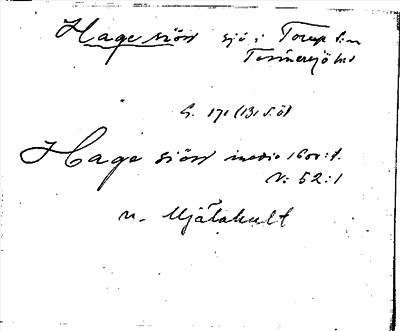 Hage siön sjö i Torup s:n
Tönnersjö hd
G. 171 (131 S. öl
Hage siön medio 1600:t.
V: 52:1
n. Mjälahult